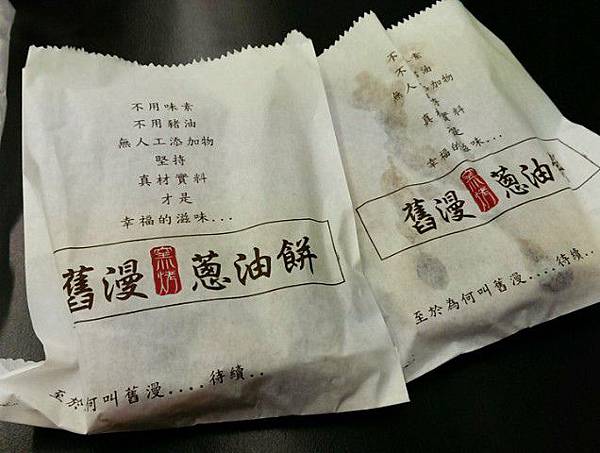 不用味素
不用豬油
無人工添加物
堅持
真材實料
才是
幸福的滋味...
舊漫 窯烤 蔥油餅
何叫舊漫....待續..
不 素
不 油
無人 添加物
真 實料
幸福的滋味...
舊漫 窯烤 蔥油
至於為何叫舊漫....待續..